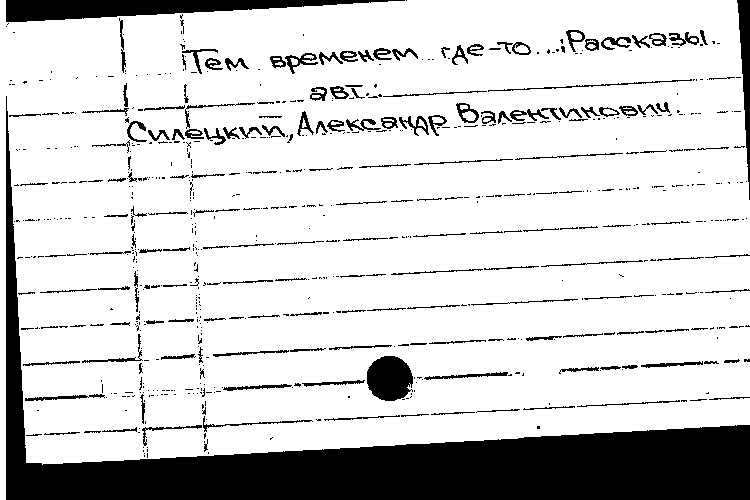 Тем временем где-то...:Рассказы.
авт.:
Силецкий,Александр Валентинович.